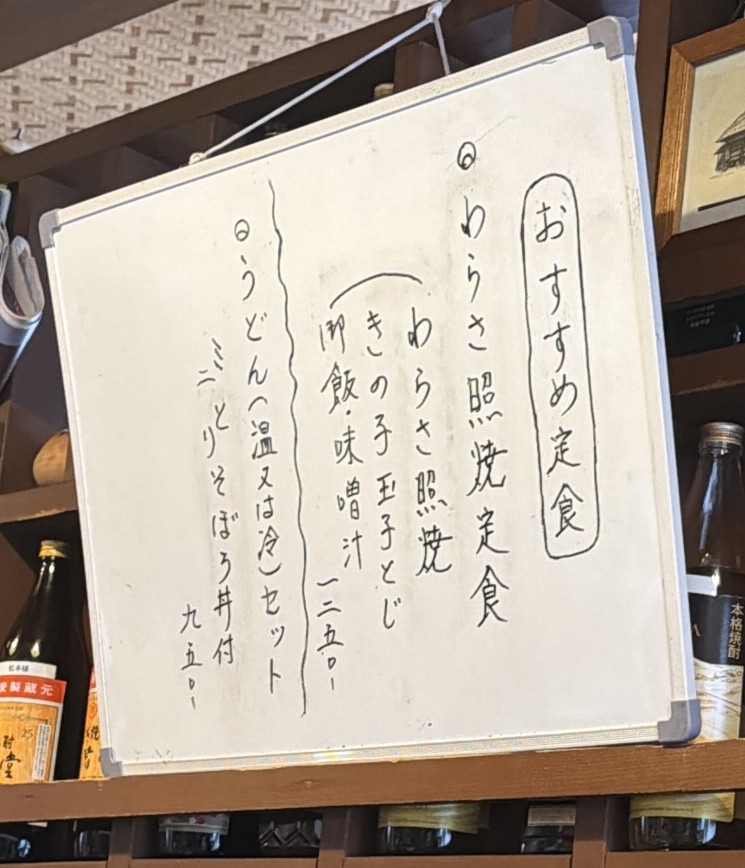 おすすめ定食
◎わらさ照焼定食
わらさ照焼
きの子玉子とじ
御飯・味噌汁 一二五〇-
◎うどん(温又は冷)セット
ミニとりそぼろ丼付
九五〇-
本格焼酎
蔵元
25